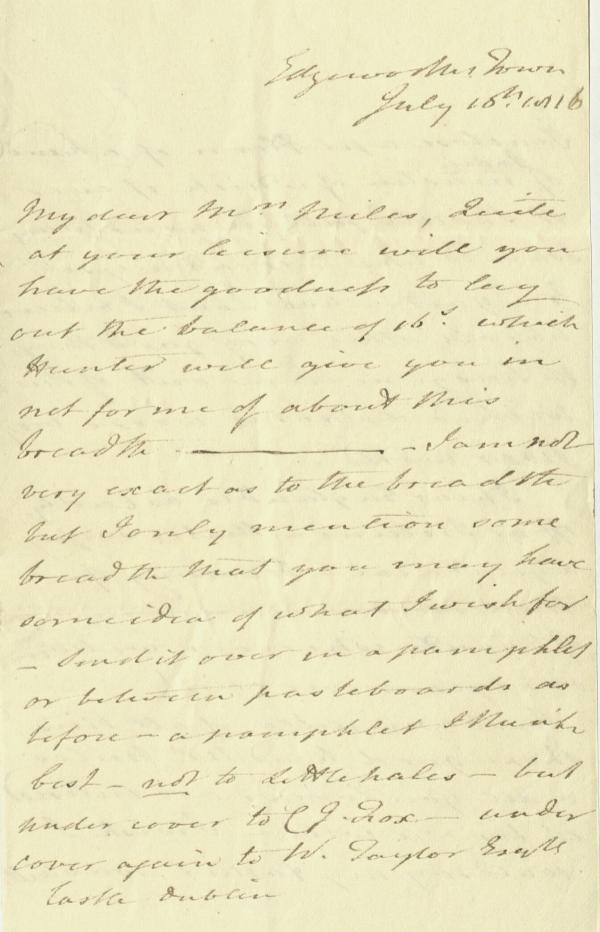 Edgeworths Town
July 16th. 1816
My dear Mrs Miles, Quite
at your leisure will you
have the goodness to lay
out the balance of 16s. which
Hunter will give you in
net for me of about this
breadth ——— – I am not
very exact as to the breadth
but I only mention some
breadth that you may have
some idea of what I wish for
– Send it over in a pamphlet
or between pasteboards as
before – a pamphlet I think
best – not to Littlehales – but
under cover to C J. Fox – under
cover again to W. Taylor Esqre
Castle Dublin